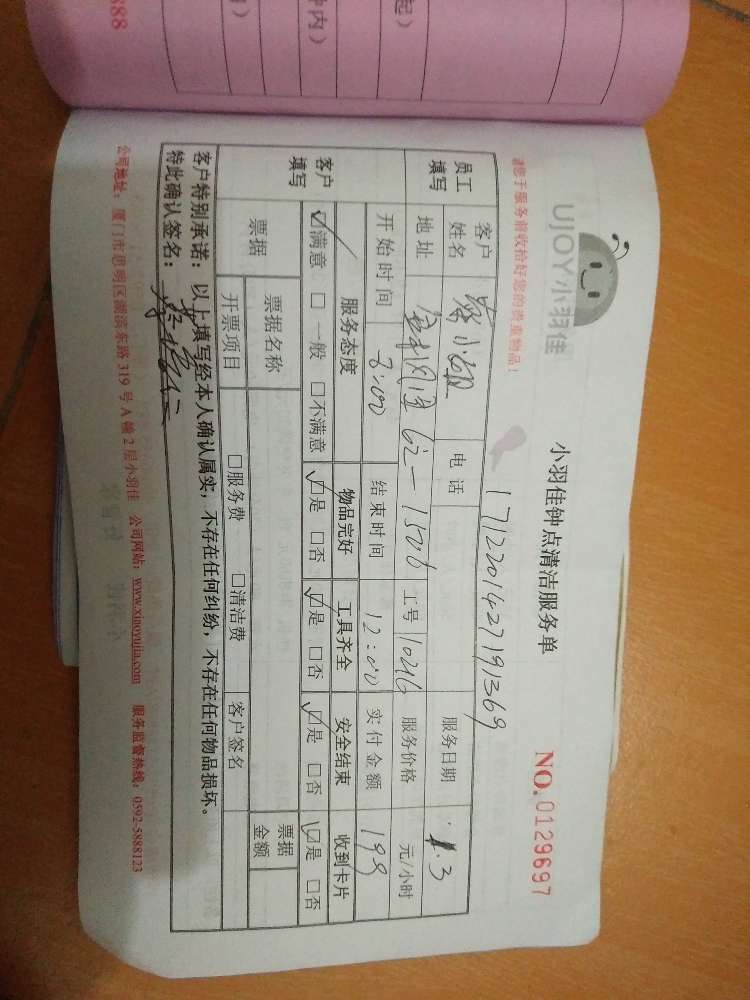 888
钟内）
起）
UJOY小羽佳
小羽佳钟点清洁服务单
NO.0129697
请您于服务前收拾好您的贵重物品！
17122014271913​69
员工填写
客户姓名
电话
服务日期 1.3
地址 62-1506 工号 10216 服务价格 元/小时
开始时间 8:00 结束时间 12:00 实付金额 199
客户填写
服务态度 物品完好 工具齐全 安全结束 收到卡片
☑满意 □一般 □不满意 ☑是 □否 ☑是 □否 ☑是 □否 ☑是 □否
票据 票据名称 票据金额
开票项目 □服务费 □清洁费 客户签名
客户特别承诺：以上填写经本人确认属实，不存在任何纠纷，不存在任何物品损坏。
特此确认签名：
公司地址：厦门市思明区湖滨东路319号A幢2层小羽佳 公司网站：www.xiaoyujia.com 服务监督热线：0592-5888123